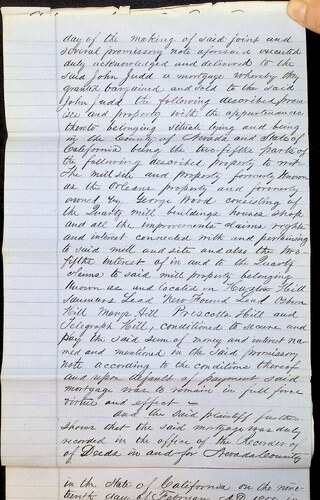 day of the making of said joint and
several promissory note aforesaid executed
duly acknowledged and delivered to the
said John Judd a mortgage whereby they
granted bargained and sold to the said
John Judd the following described prem
ises and property with the appurtenances
thereto belonging situate lying and being
in the County of Nevada and State of
California being the two fifths parts of
the following described property to wit
The mill site and property formerly known
as the Orleans property and formerly
owned by George Wood consisting of
the Quartz mill buildings houses shop
and all the improvements claims rights
and interest connected with and pertaining
to said mill and site and also the two
fifths interest of in and to the Quartz
claims to said mill property belonging
known as and located on Hill
Lead New Found Lead Osborn
Hill Hill Prescotts Hill and
Telegraph Hill, conditioned to secure and
pay the said sum of money and interest na
med and mentioned in the said promissory
note according to the conditions thereof
and upon default of payment said
mortgage was to remain in full force
virtue and effect —
and the said plaintiff further
shows that the said mortgage was duly
recorded in the office of the Recorder
of Deeds in and for Nevada County
in the State of California on the nine
teenth day of February